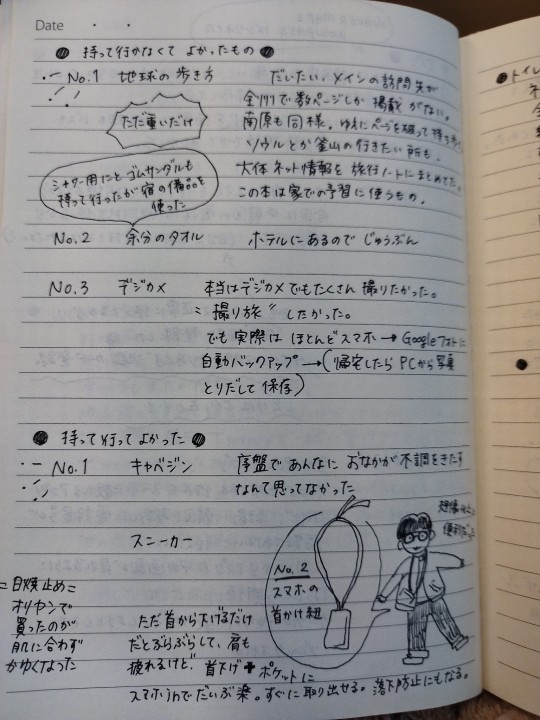 Date
● 持って行かなくて よかったもの ●
No.1 地球の歩き方 だいたい、メインの訪問先が
全州で数ページしか 掲載 がない。
ただ重いだけ
南原も同様。ゆえにページを破って持ち歩く
ソウルとか釜山の行きたい所も、
大体 ネット情報を 旅行ノートにまとめてた。
この本は家での予習に使うもの。
シャワー用にと ゴムサンダルも
持って行ったが宿の備品を
使った
No.2 余分のタオル ホテルにあるので じゅうぶん
No.3 デジカメ 本当はデジカメでもたくさん 撮りたかった。
〝撮り旅〟したかった。
でも 実際は ほとんど スマホ → Googleフォトに
自動バックアップ →(帰宅したら PCから写真
とりだして 保存)
● 持って行って よかった ●
No.1 キャベジン 序盤で あんなに おなかが 不調をきたす
なんて思ってなかった
スニーカー
No.2
スマホの
首かけ紐
想像以上に
便利だった
=日焼止め=
オリヤンで
買ったのが
肌に合わず
かゆくなった
ただ首から下げるだけ
だとぶらぶらして、肩も
疲れるけど、首下げ + ポケットに
スマホinでだいぶ楽。すぐに取り出せる。落下防止にもなる。
●トイレ